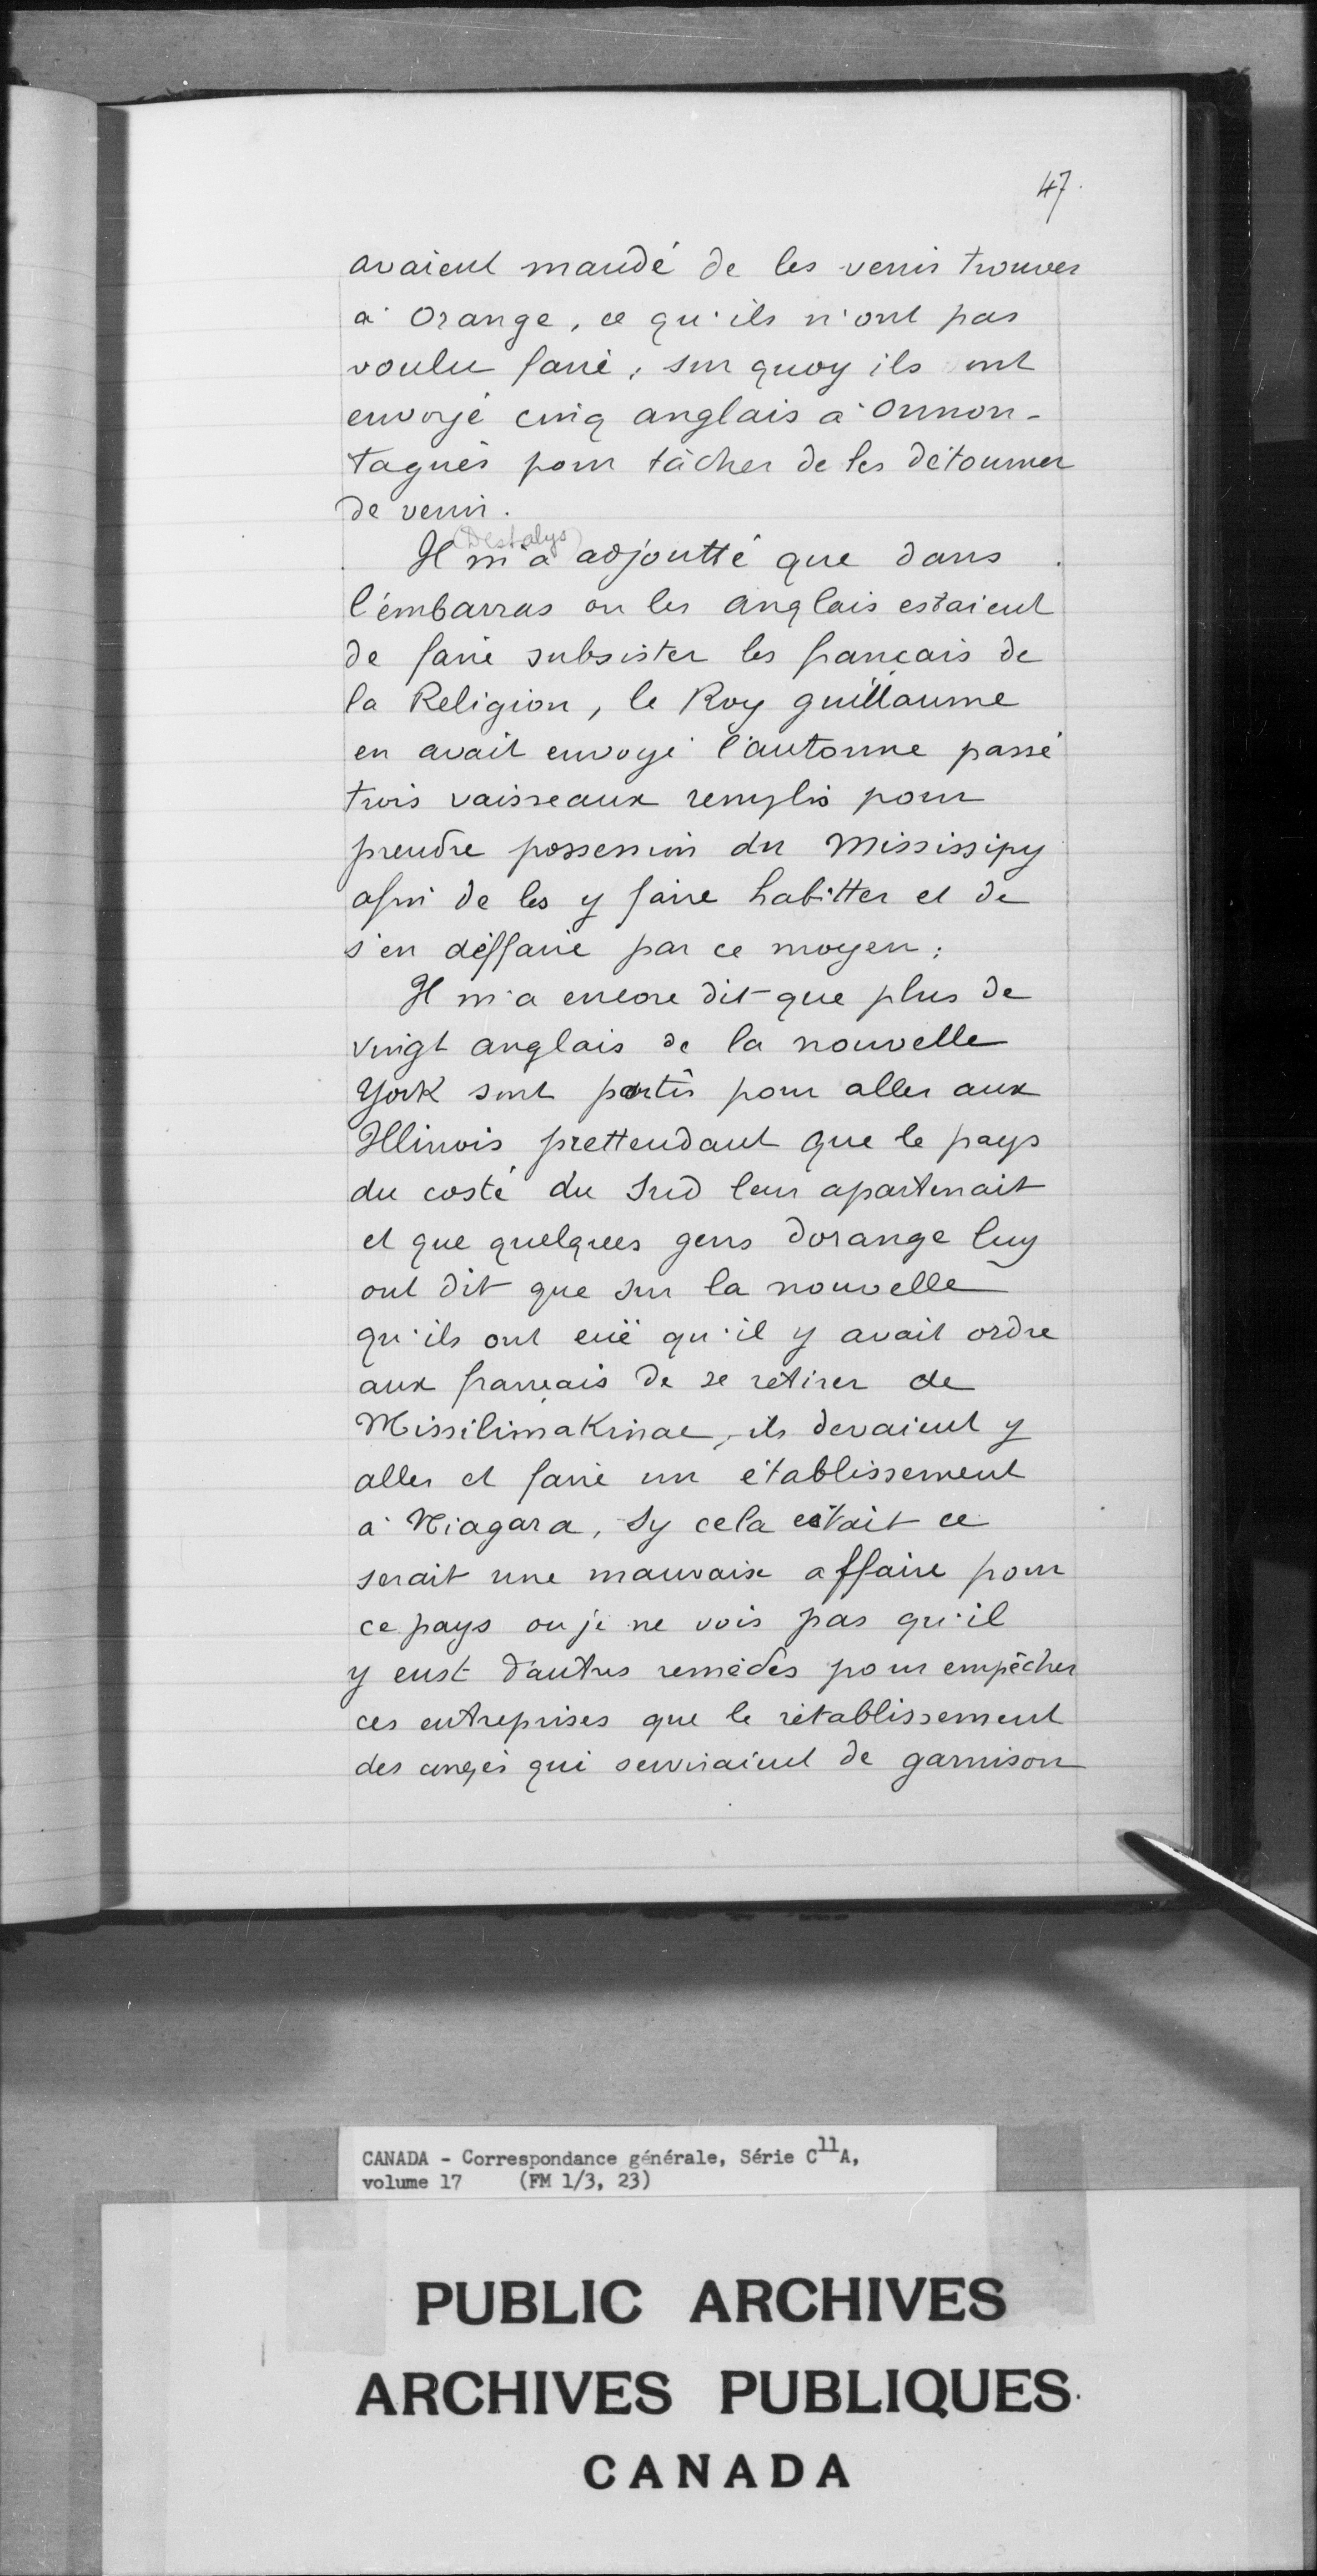 47.
avaient mandé de les venir trouver
à Orange, ce qu'ils n'ont pas
voulu faire; sur quoy ils ont
envoyé cinq anglais à Onnon-
tagués pour tâcher de les détourner
de venir.
(Destalys)
Il m'a adjoutté que dans
l'embarras ou les anglais estaient
de faire subsister les français de
la Religion, le Roy guillaume
en avait envoyé l'automne passé
trois vaisseaux remplis pour
prendre possession du Mississipy
afin de les y faire habitter et de
s'en déffaire par ce moyen;
Il m'a encore dit que plus de
vingt anglais de la nouvelle
York sont partis pour aller aux
Illinois prettendant que le pays
du costé du Sud leur apartenait
et que quelques gens dorange luy
ont dit que sur la nouvelle
qu'ils ont euë qu'il y avait ordre
aux français de se retirer de
Missilimakinac, ils devaient y
aller et faire un établissement
à Niagara, Sy cela estait ce
serait une mauvaise affaire pour
ce pays ou je ne vois pas qu'il
y eust d'autres remèdes pour empêcher
ces entreprises que le rétablissement
des congés qui serviraient de garnison
CANADA - Correspondance générale, Série C11A,
volume 17 (FM 1/3, 23)
PUBLIC ARCHIVES
ARCHIVES PUBLIQUES
CANADA